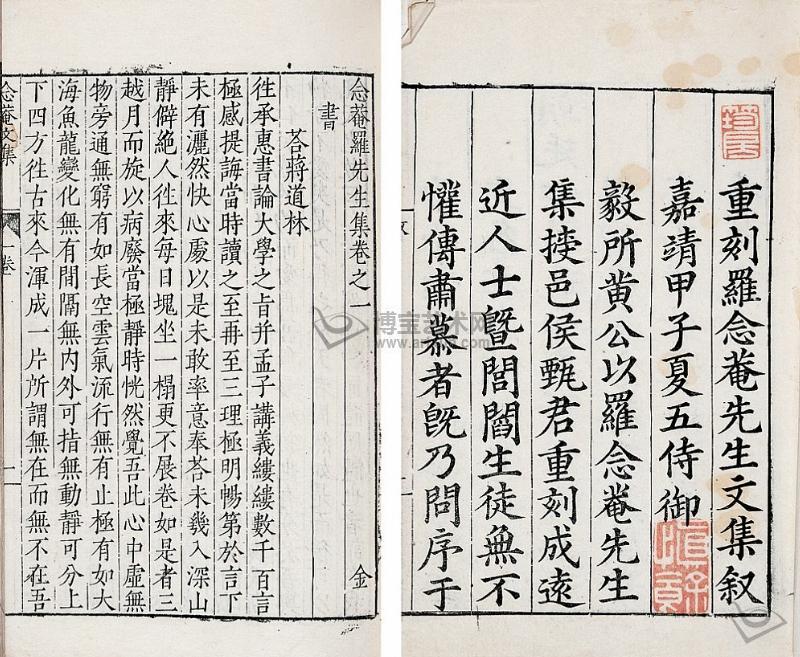 重刻羅念菴先生文集叙
嘉靖甲子夏五侍御
毅所黄公以羅念菴先生
集授邑侯甄君重刻成遠
近人士暨閭閻生徒無不
懽傳肅慕者旣乃問序于
念菴羅先生集卷之一
金
書
荅蔣道林
徃承惠書論大學之旨并孟子講義縷縷數千百言
極感提誨當時讀之至再至三理極明暢第於言下
未有灑然快心處以是未敢率意奉荅未幾入深山
靜僻絶人徃來每日塊坐一榻更不展卷如是者三
越月而旋以病廢當極靜時恍然覺吾此心中虛無
物旁通無窮有如長空雲氣流行無有止極有如大
海魚龍變化無有間隔無内外可指無動靜可分上
下四方徃古來今渾成一片所謂無在而無不在吾
念菴文集
一卷
一
博宝艺术网